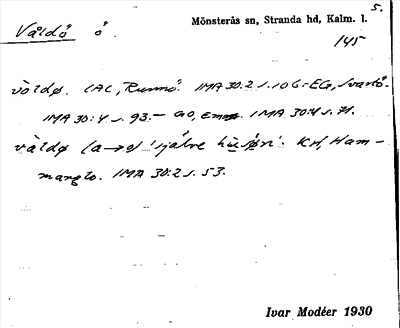 5.
Våldö ö
Mönsterås sn, Stranda hd, Kalm. l.
145
vòldø. CAC, Runnö. IMA 30:2 s. 106. EG, Svartö.
IMA 30:4 s. 93. — GO, Emm. IMA 30:4 s. 71.
våldø (a→o) 'själve husøn'. KH, Ham-
marglo. IMA 30:2 s. 53.
Ivar Modéer 1930